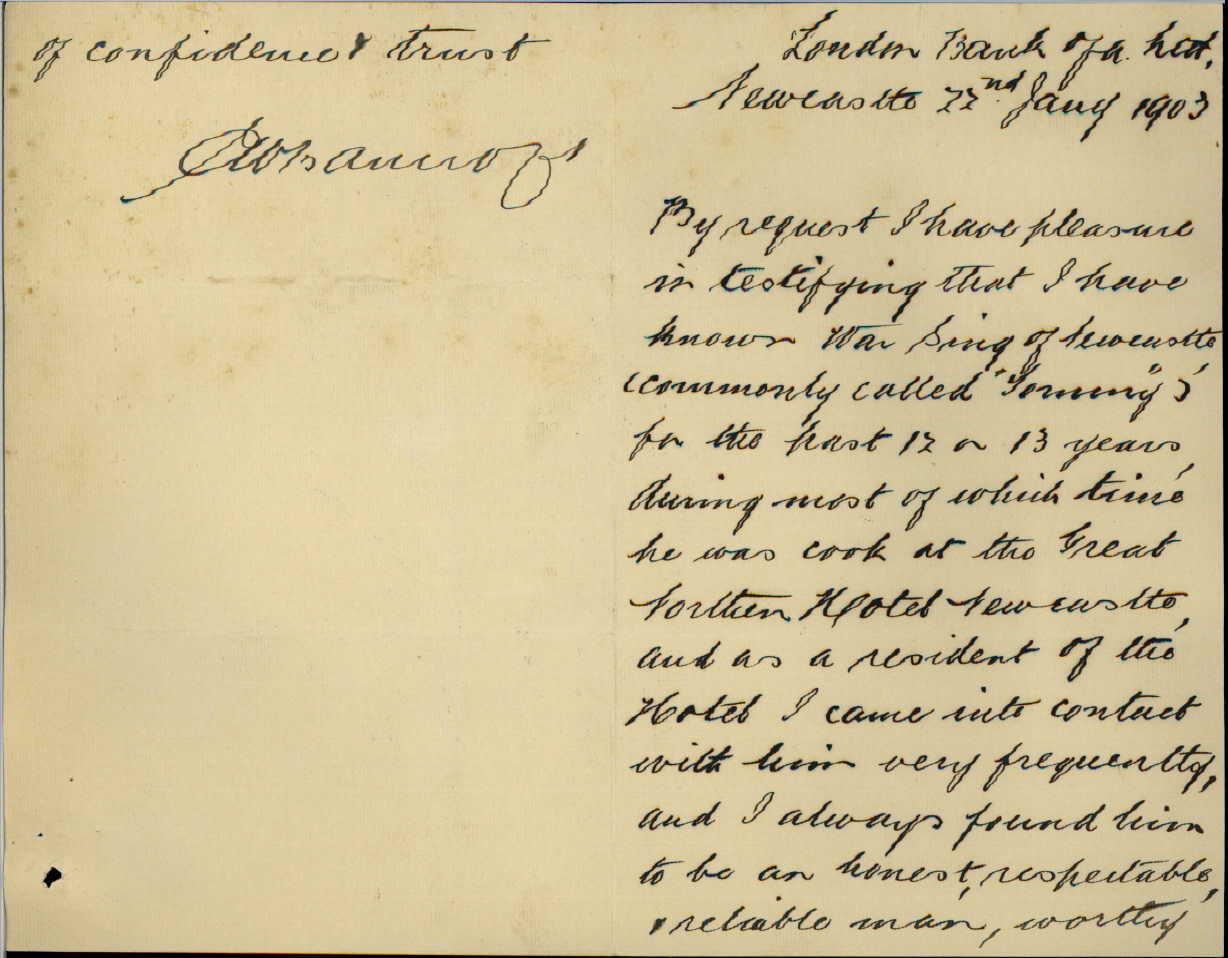 London Bank of A. Ltd.
Newcastle 22nd Jany 1903
By request I have pleasure
in testifying that I have
known War Sing of Newcastle
(commonly called "Tommy")
for the past 12 or 13 years,
during most of which time
he was cook at the Great
Northern Hotel Newcastle,
and as a resident of the
Hotel I came into contact
with him very frequently,
and I always found him
to be an honest, respectable,
& reliable man, worthy
of confidence & trust